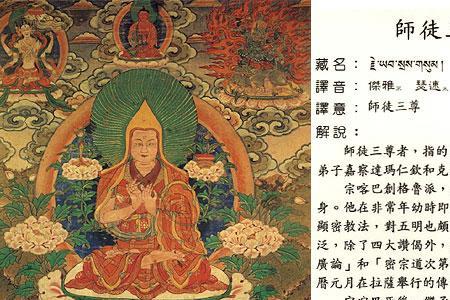 師徒三
藏名：རྗེ་ཡབ་སྲས་གསུམ།
譯音：傑雅 瑟速
譯意：師徒三尊
解說：
師徒三尊者，指的
弟子嘉察達瑪仁欽和克
宗喀巴創格魯派，
身。他在非常年幼時即
顯密教法，對五明也頗
泛，除了四大讚偈外，
廣論」和「密宗道次第
曆元月在拉薩舉行的傳